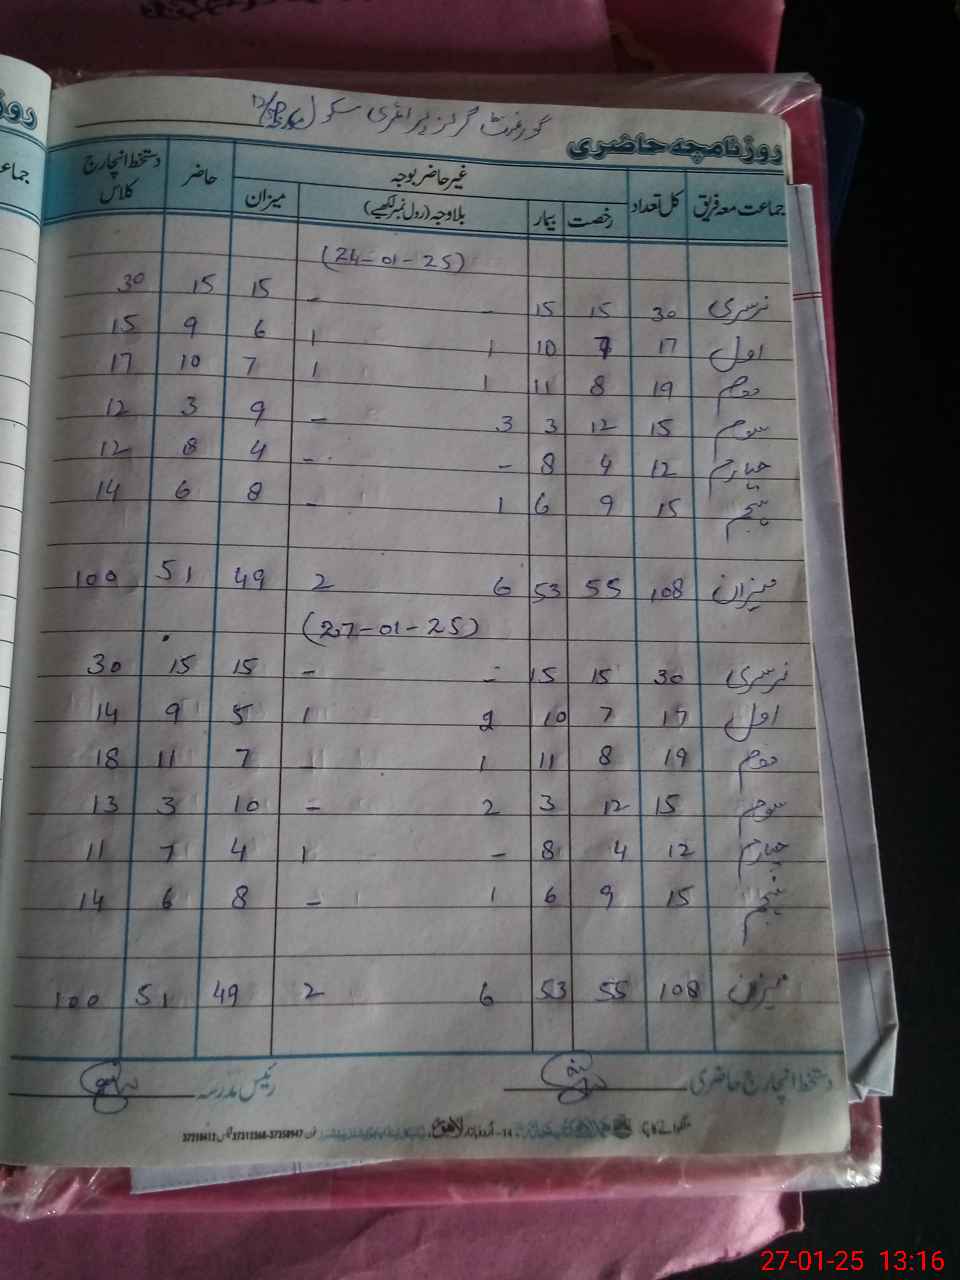 گورنمنٹ گرلز پرائمری سکول
روزنامچہ حاضری
جماعت معہ فریق کل تعداد غیر حاضر بوجہ حاضر دستخط انچارج کلاس
رخصت بیمار بلاوجہ (رول نمبر لکھیے) میزان
(24-01-25)
نرسری 30 15 15 - - 15 15 30
اول 17 7 10 1 1 6 9 15
دوم 19 8 11 1 1 7 10 17
سوم 15 12 3 3 - 9 3 12
چہارم 12 4 8 - - 4 8 12
پنجم 15 9 6 1 - 8 6 14
میزان 108 55 53 6 2 49 51 100
(27-01-25)
نرسری 30 15 15 - - 15 15 30
اول 17 7 10 2 1 5 9 14
دوم 19 8 11 1 - 7 11 18
سوم 15 12 3 2 - 10 3 13
چہارم 12 4 8 - 1 4 7 11
پنجم 15 9 6 1 - 8 6 14
میزان 108 55 53 6 2 49 51 100
دستخط انچارج حاضری رئیس مدرسہ
27-01-25 13:16